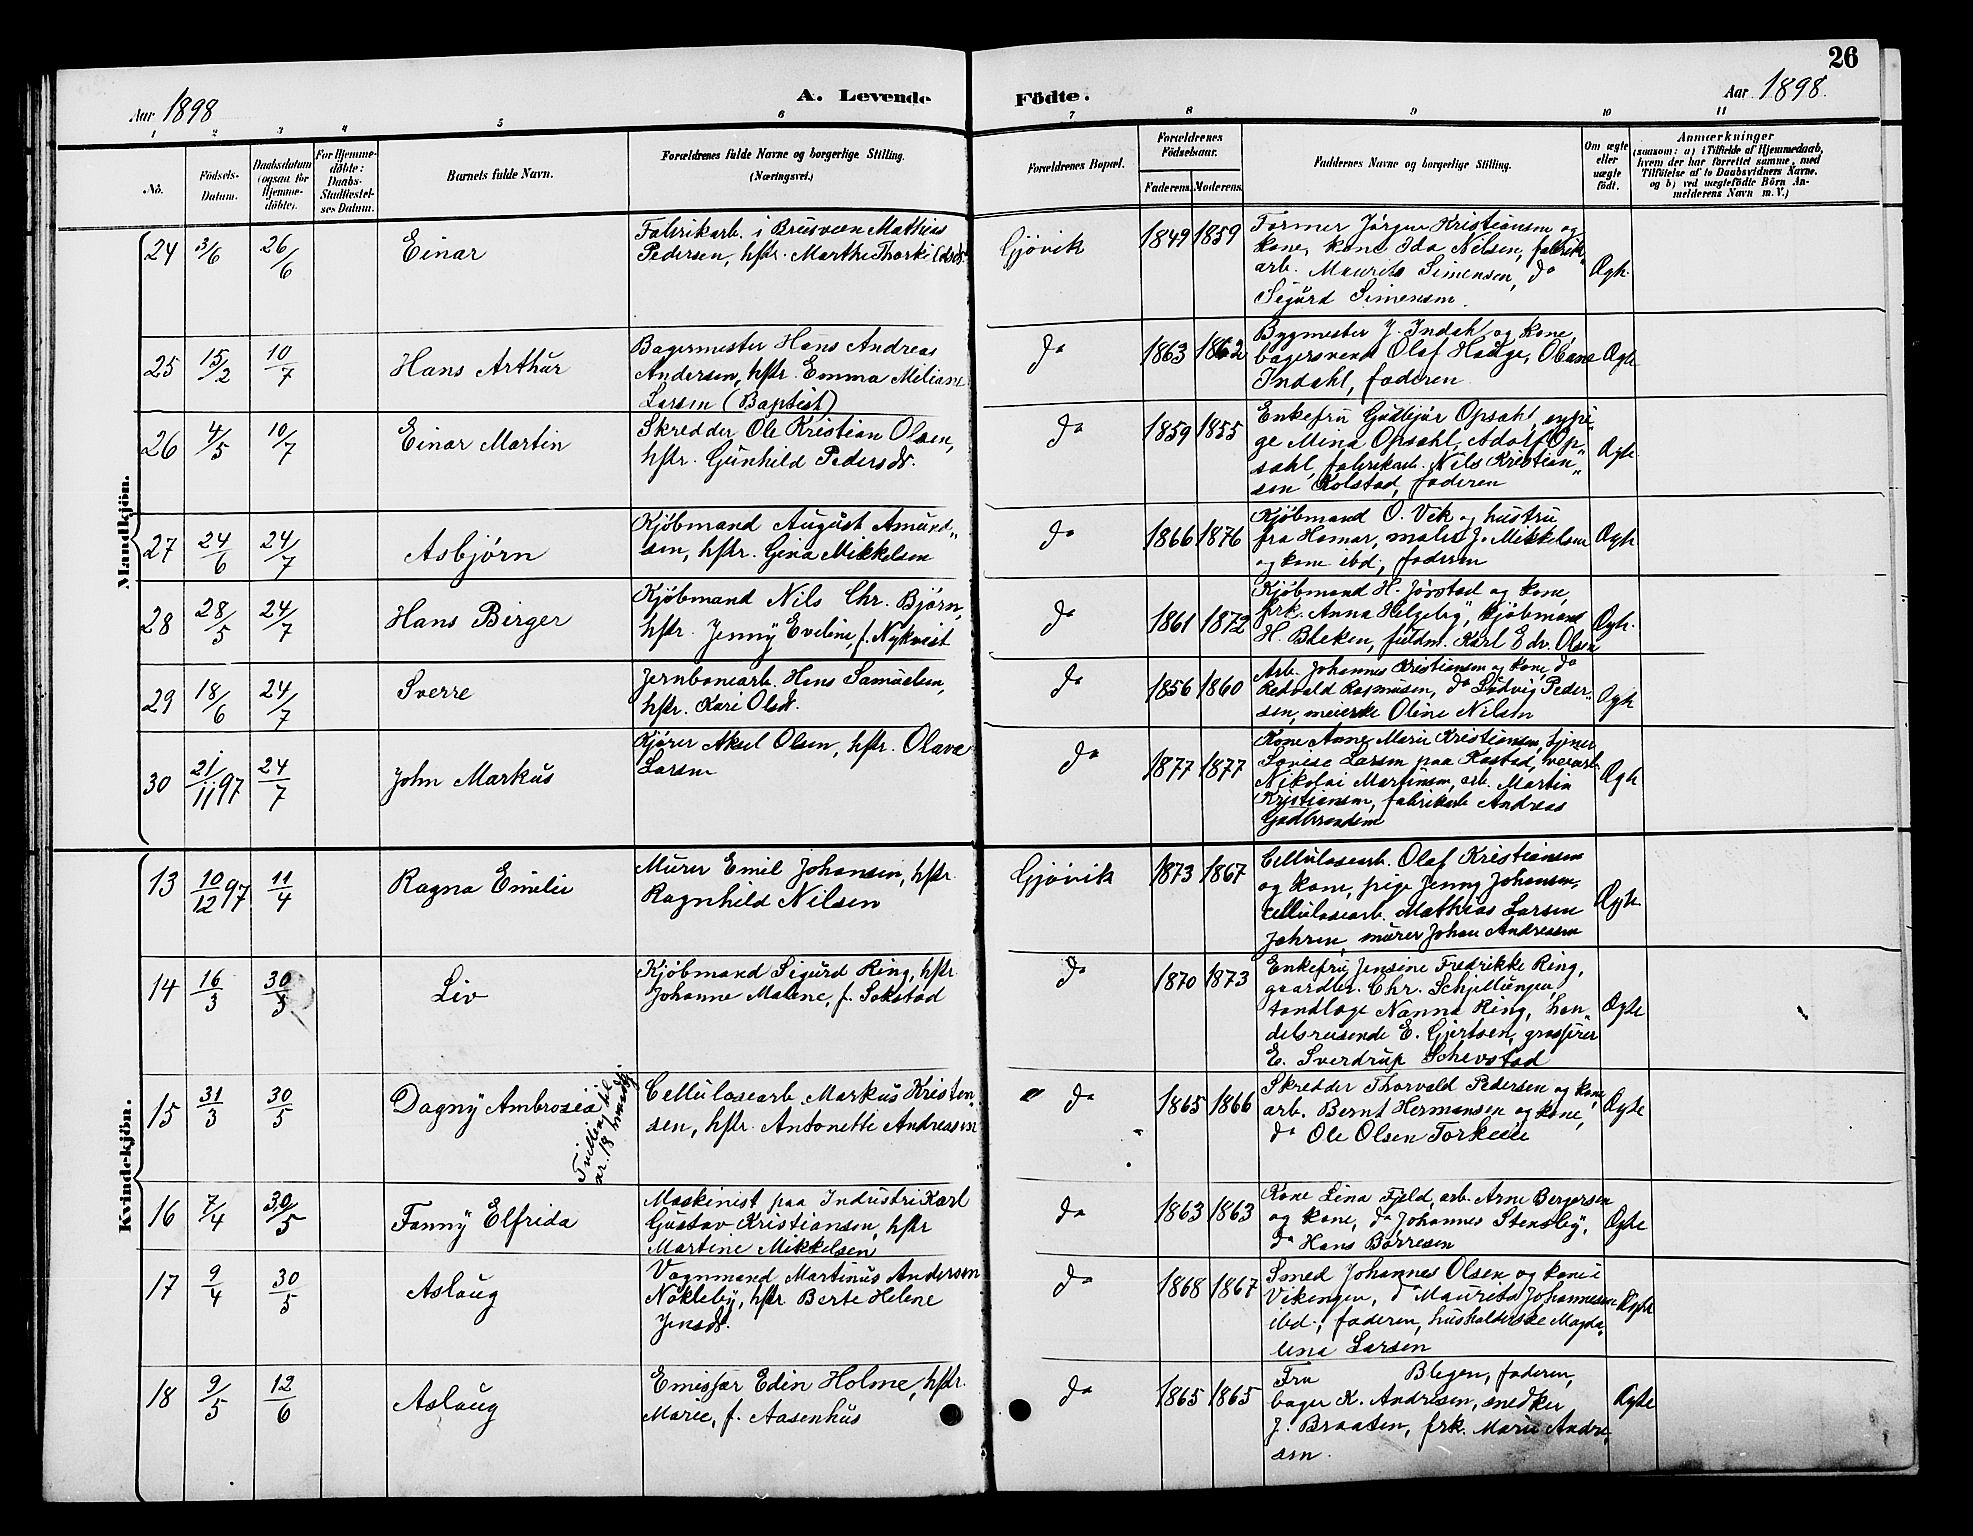 26
Aar 1898
A. Levende
Födte.
Aar 1898.
1 2 3 4 5 6 7 8 9 10 11
No.
Födsels-
Datum.
Daabsdatum
(ogsaa for
Hjemme-
döbte).
For Hjemme-
döbte:
Daabs-
Stadfæstel-
ses Datum.
Barnets fulde Navn.
Forældrenes fulde Navne og borgerlige Stilling.
(Næringsvei.)
Forældrenes Bopæl.
Forældrenes
Födselsaar.
Faderens. Moderens.
Faddernes Navne og borgerlige Stilling.
Om ægte
eller
uægte
født.
Anmærkninger
(saasom: a) i Tilfælde af Hjemmedaab,
hvem der har forrettet samme, med
Tilføielse af to Daabsvidners Navne.
og b) ved uægtefödte Börn An-
melderens Navn m. V.)
Mandkjön.
24 3/6 26/6 Einar
Fabrikarb. i Brusveen Mathias
Pedersen, hstr. Marthe Thorkildsdt.
Gjövik 1849 1859
Former Jörgen Kristiansen og
kone, kone Ida Nilsen, fabrik-
arb. Maurits Simensen, do
Sigurd Simensen.
Ægte
25 15/2 10/7 Hans Arthur
Bagermester Hans Andreas
Andersen, hstr. Emma Miliane
Larsen (Baptist)
do 1863 1862
Bygmester J. Indahl og kone,
bagersvend Olaf Hauge,
Indahl, faderen
Ægte
26 4/5 10/7 Einar Martin
Skredder Ole Kristian Olsen,
hstr. Gunhild Pedersdt.
do 1859 1855
Enkefru Gudbjör Opsahl, sypi-
ge Mina Opsahl, Adolf Op-
sahl, fabrikarb. Nils Kristian-
sen Kolstad, faderen
Ægte
27 24/6 24/7 Asbjörn
Kjöbmand August Amund-
sen, hstr. Gina Mikkelsen
do 1866 1876
Kjöbmand O. Vik og hustru
fra Hamar, maler J. Mikkelsen
og kone ibd., faderen
Ægte
28 28/5 24/7 Hans Birger
Kjöbmand Nils Chr. Björn,
hstr. Jenny Eveline, f. Nykvist
do 1861 1872
Kjöbmand H. Jörstad og kone,
frk. Anna Helgeby, kjöbmand
H. Bleken, fuldm. Karl Edv. Olsen
Ægte
29 18/6 24/7 Sverre
Jernbanearb. Hans Samuelsen,
hstr. Kari Olsdt.
do 1856 1860
Arb. Johannes Kristiansen og kone, do
Redvald Rasmusen, do Ludvig Peder-
sen, meierske Oline Nilsen
Ægte
30 21/11 97 24/7 John Markus
Kjörer Aksel Olsen, hstr. Olava
Larsen
do 1877 1877
Kone Anne Marie Kristiansen, tjener
Lovise Larsen paa Kastad, veiarb.
Nikolai Martinsen, arb. Martin
Kristiansen, fabrikarb. Andreas
Gudbrandsen
Ægte
Kvindekjön.
13 10/12 97 11/4 Ragna Emilie
Murer Emil Johansen, hstr.
Ragnhild Nilsen
Gjövik 1873 1867
Cellulosearb. Olaf Kristiansen
og kone, pige Jenny Johansen,
cellulosearb. Mathias Larsen
Jahren, murer Johan Andresen
Ægte
14 16/3 30/5 Liv
Kjöbmand Sigurd Ring, hstr.
Johanne Malene, f. Sokstad
do 1870 1873
Enkefru Jensine Fredrikke Ring,
gaardbr. Chr. Schjellungen,
tandlæge Nanna Ring, han-
delsreisende E. Gjertsen, grosserer
E. Sverdrup Schevstad
Ægte
15 31/3 30/5 Dagny Ambrosia
Tvilling til
nr. 13 mandkj.
Cellulosearb. Markus Kristen-
sen, hstr. Antonette Andreassen
do 1865 1866
Skredder Thorvald Pedersen og kone,
arb. Bernt Hermansen og kone,
do Ole Olsen
Ægte
16 7/4 30/5 Fanny Elfrida
Maskinist paa Industri Karl
Gustav Kristiansen, hstr
Martine Mikkelsen
do 1863 1863
Kone Lina Fjeld, arb. Arne Bergersen
og kone, do Johannes Stensby,
do Hans Börresen
Ægte
17 9/4 30/5 Aslaug
Vognmand Martinus Andersen
Nökleby, hstr Berte Helene
Jensdt.
do 1868 1867
Smed Johannes Olsen og kone i
Vikingen, do Maurits Johannesen
ibd., faderen, husholderske Magda-
lena Larsen
Ægte
18 9/5 12/6 Aslaug
Emissær Edin Holme, hstr.
Marie, f. Aasenhus
do 1865 1865
Fru Blegen, faderen,
bager K. Andresen, snedker
J. Braaten, frk. Marie Andre-
sen.
Ægte